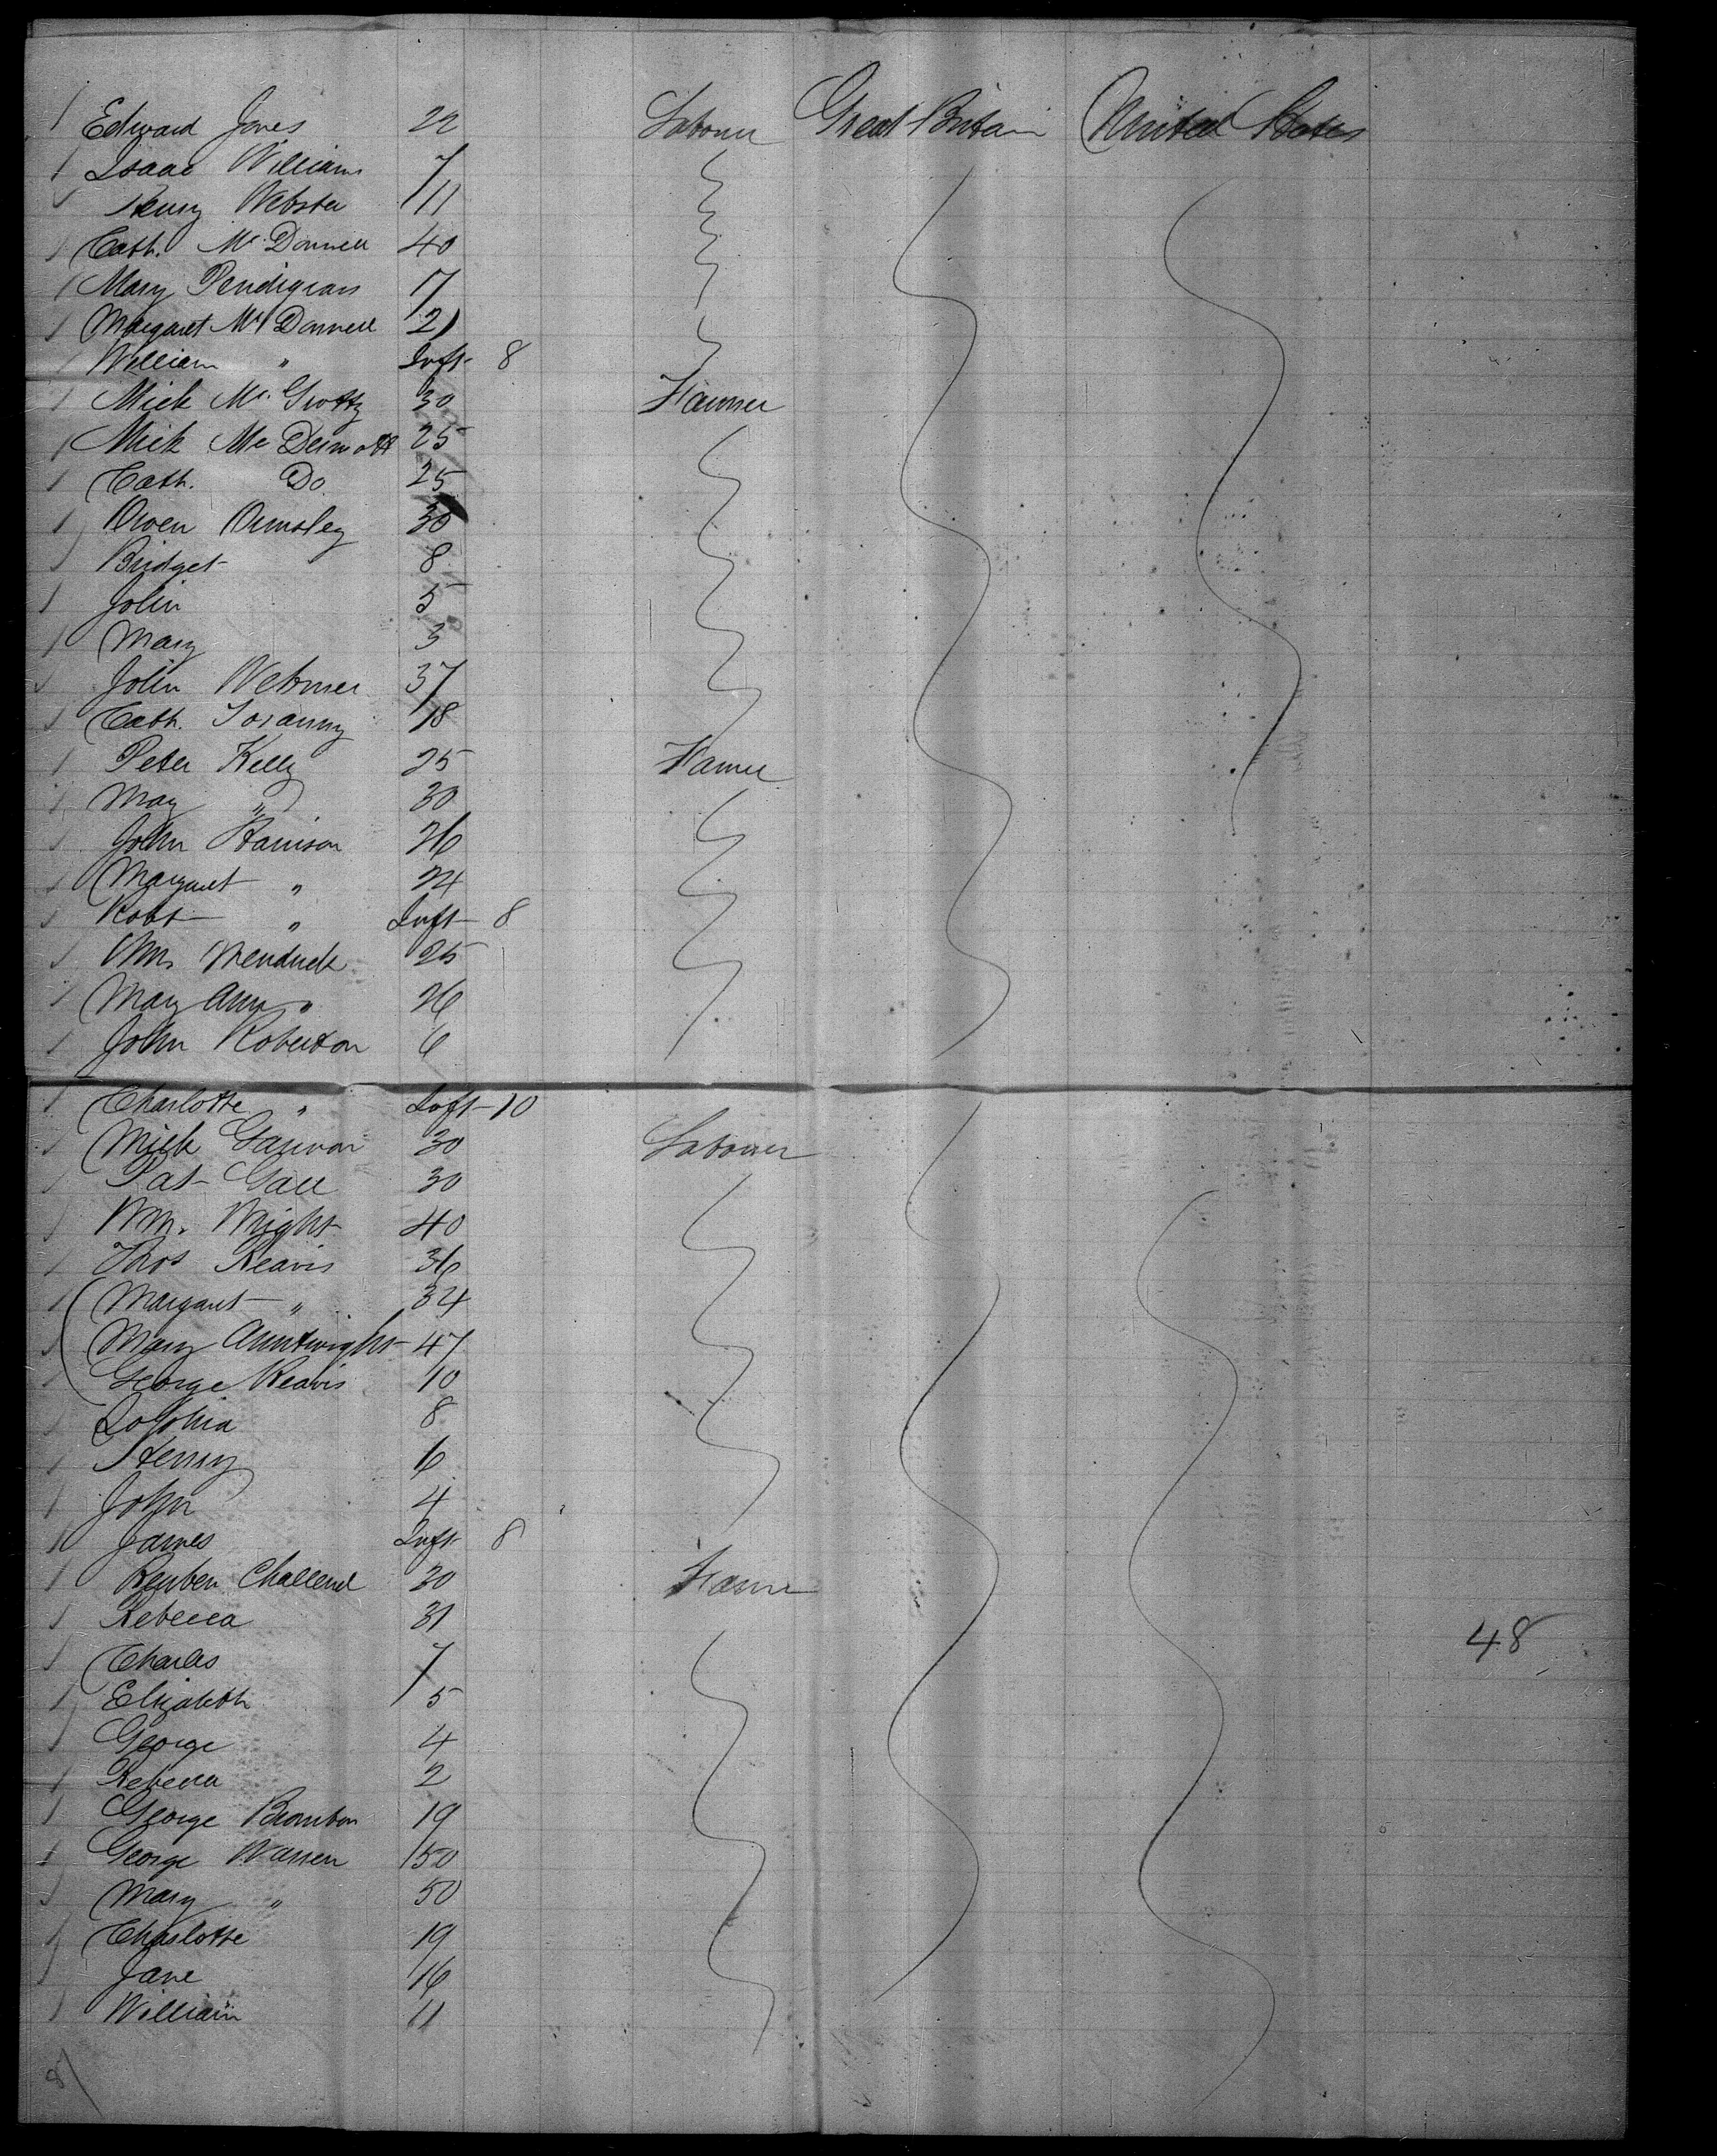 Edward Jones 22 Labourer Great Britain United States
Isaac Williams 7
Henry Webster 11
Cath. McDonnell 40
Mary Pendigrass 17
Margaret McDonnell 21
William " Inft 8
Mick Mc. Grotty 30 Farmer
Mick Mc Dermott 25
Cath. Do 25
Owen Ormsley 30
Bridget 8
John 5
Mary 3
John Webmer 37
Cath. 18
Peter Kelly 25 Farmer
May " 30
John Harrison 26
Margaret " 24
Robt " Inft 8
Wm. 25
May Ann " 26
John Roberton 6
Charlotte " Inft 10
Mick Gannon 30 Labourer
Pat Gall 30
Wm. Wright 40
Thos Reavis 36
Margaret " 34
Mary Ann Wright 47
George Reavis 10
Sophia 8
Henry 6
John 4
James Inft 8
Reuben Challend 30 Farmer
Rebecca 31
Charles 7
Elizabeth 5
George 4
Rebecca 2
George Bromton 19
George Warren 50
Mary " 50
Charlotte 19
Jane 16
William 11
48